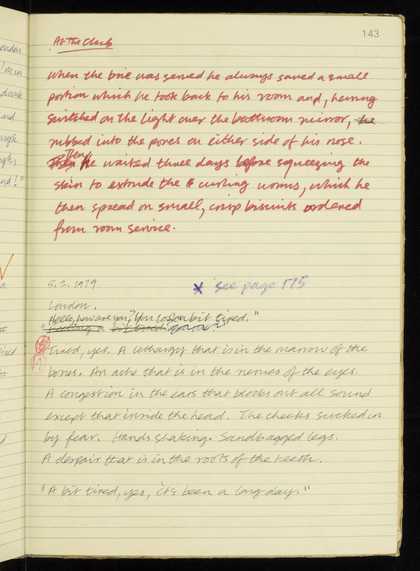 143
At The Club
When the brie was served he always saved a small
portion which he took back to his room and, having
switched on the light over the bathroom mirror, he
rubbed into the pores on either side of his nose.
Then he waited three days before squeezing the
skin to extrude the curling worms, which he
then spread on small, crisp biscuits ordered
from room service.
5.2.1979.
* see page 175
London.
"Hello, how are you? You look a bit tired."
Tired, yes. A lethargy that is in the marrow of the
bones. An ache that is in the nerves of the eyes.
A congestion in the ears that blocks out all sound
except that inside the head. The cheeks sucked in
by fear. Hands shaking. Sandbagged legs.
A despair that is in the roots of the teeth.
"A bit tired, yes, it's been a long day."